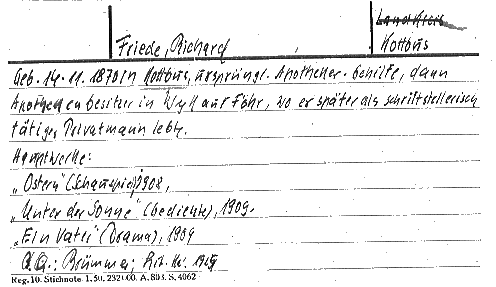 Landkreis
Friede, Richard Kottbus
Geb. 14. 11. 1870 in Kottbus, ursprüngl. Apotheker-Gehilfe, dann
Apothekenbesitzer in Wyk auf Föhr, wo er später als schriftstellerisch
tätiger Privatmann lebte.
Hauptwerke:
„Ostern" (Schauspiel) 1908,
„Unter der Sonne" (Gedichte), 1909.
„Ein Vater" (Drama), 1909
Brümmer;
Reg. 10. Stichnote. 1. 50. 2321 00. A. 803. S. 4062